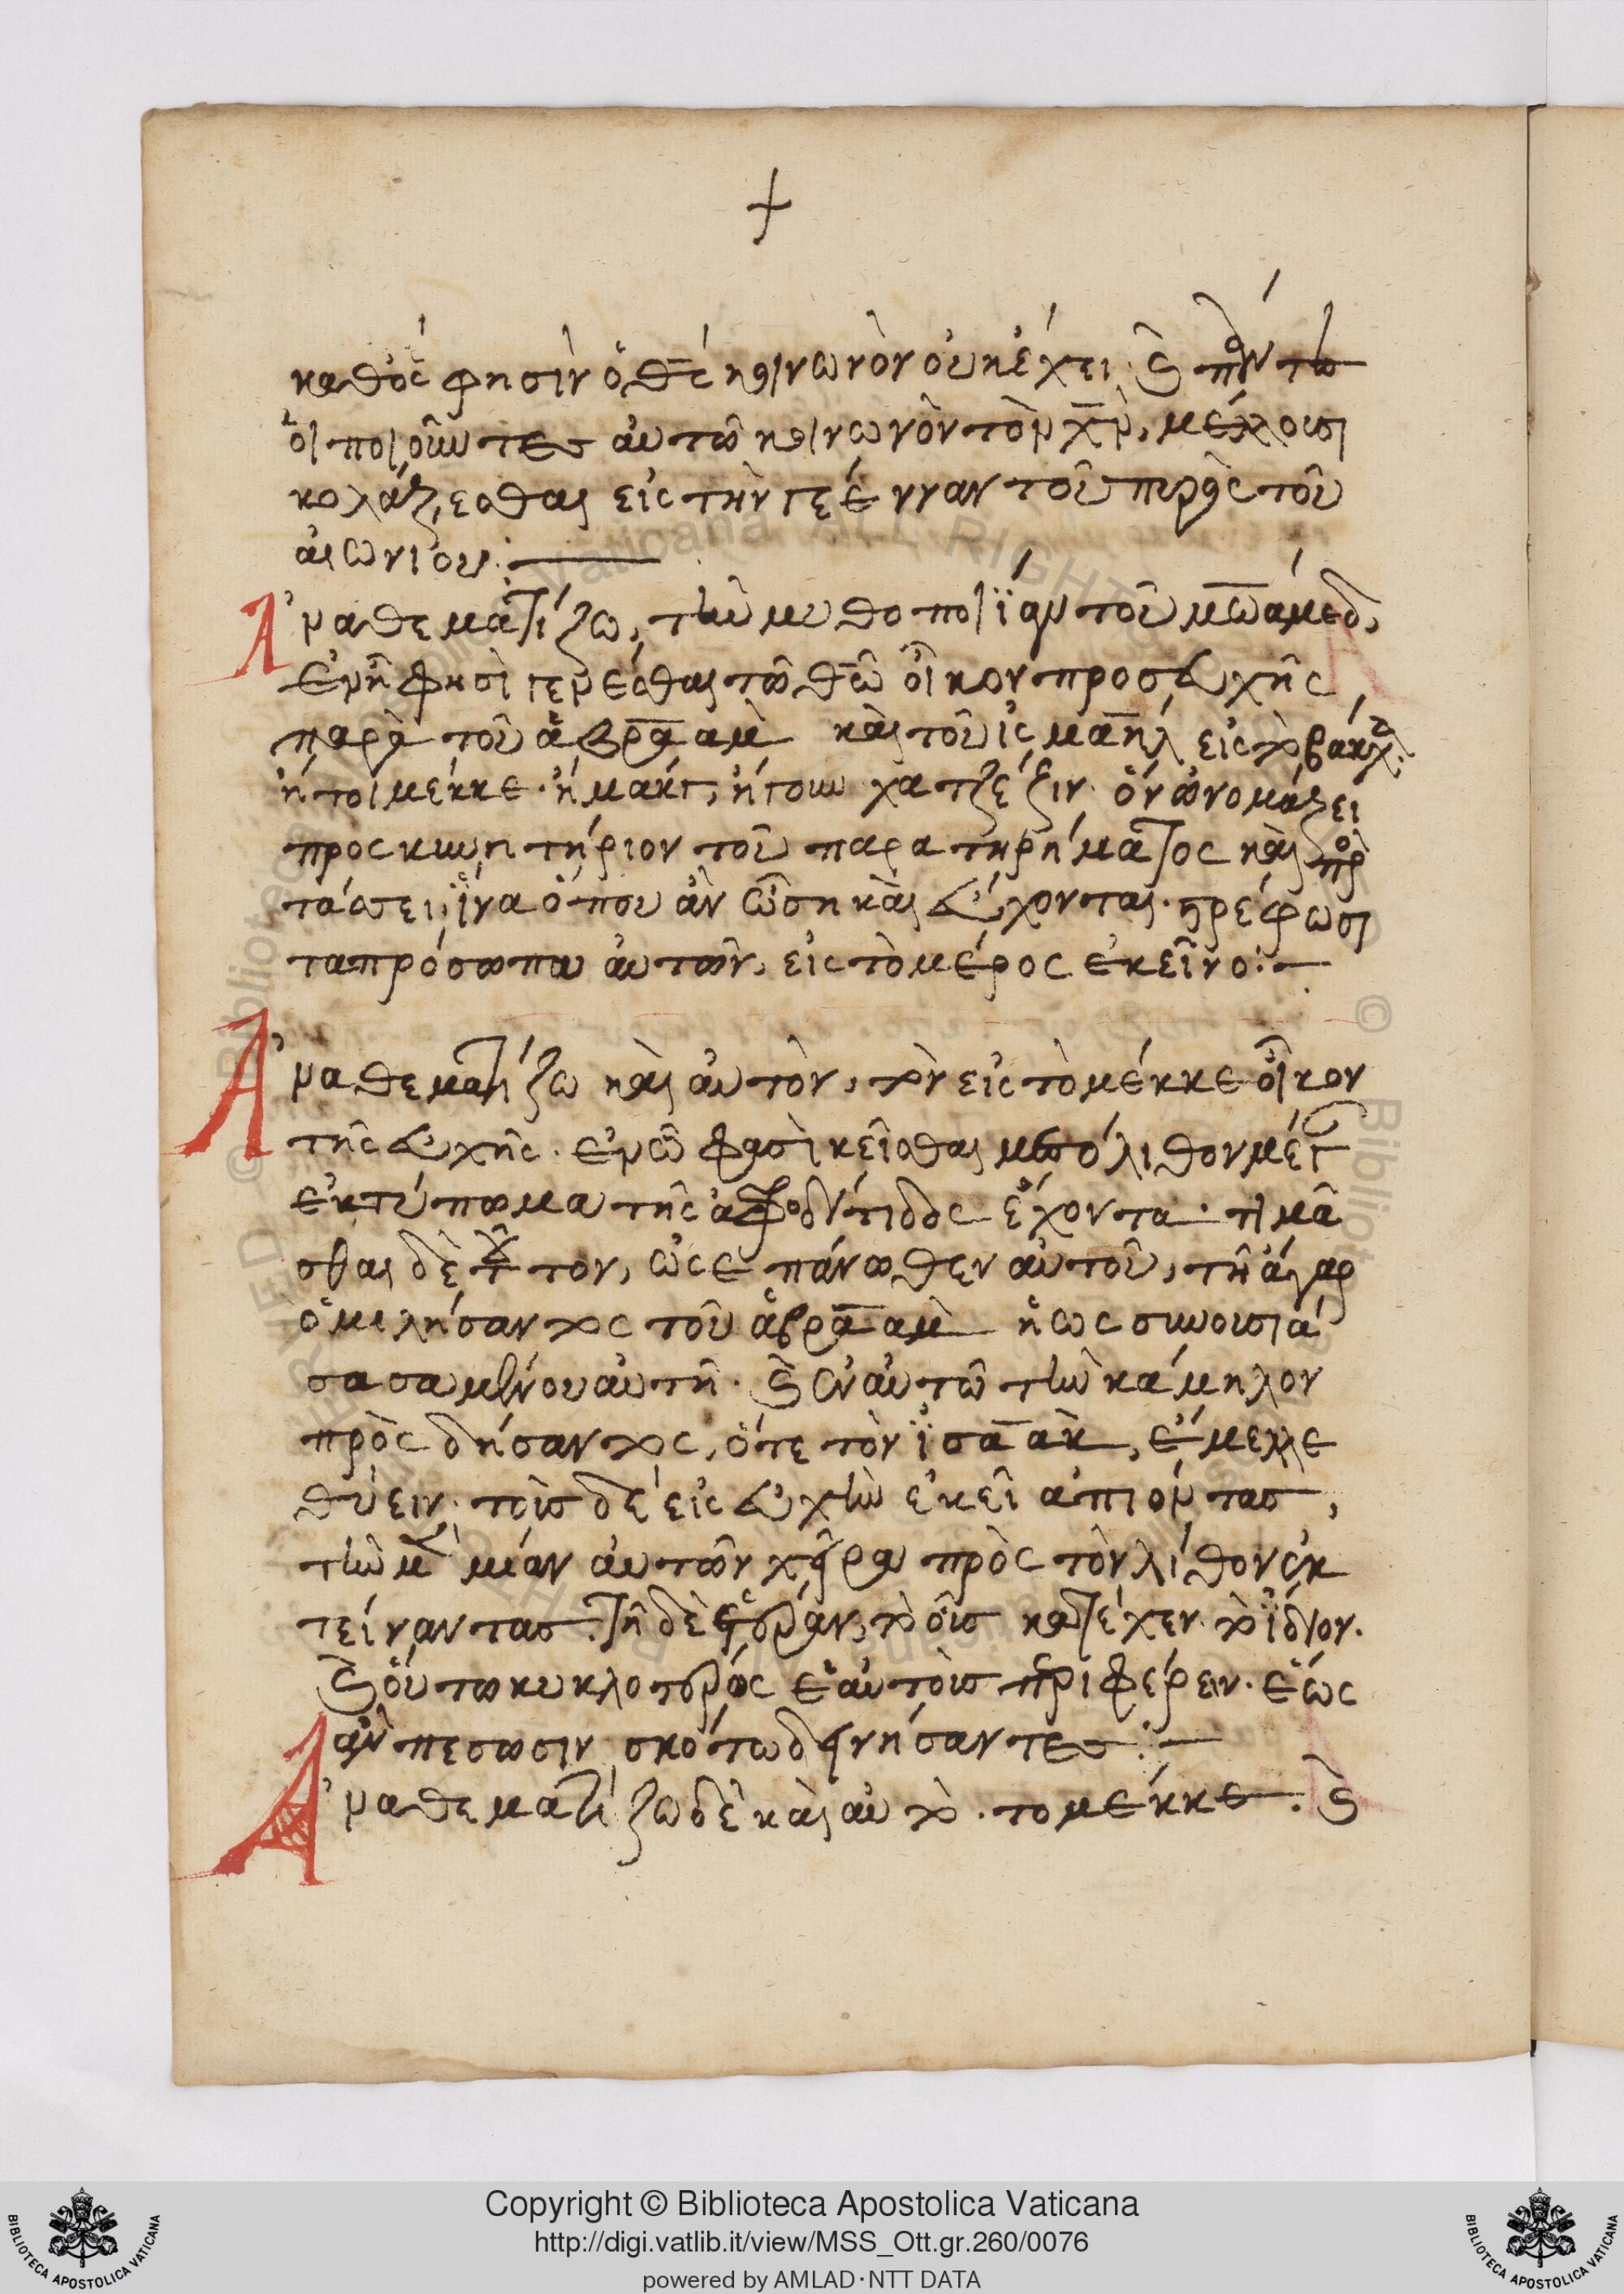 +
καθὸ φησὶν ὁ θς κοινωνὸν οὐκ έχει· καὶ
οἱ ποιοῦντες αὐτῶ κοινωνὸν τὸν χν, μέλλουσι
κολάζεσθαι εἰς τὴν γεένναν τοῦ πυρὸς τοῦ
αἰωνίου:
Ἀναθεματίζω, τὴν μυθοποιΐαν τοῦ μωάμεδ,
ἐν ἧ φησὶ γενέσθαι τῶ θῶ οἶκον προσευχῆς
παρὰ τοῦ ἀβραὰμ καὶ τοῦ ἰσμαὴλ εἰς τὸ
ἤτοι μέκκε· ἢ μακὲ, ἤγουν χατζέξιν· ὃν ὠνομάζει
προσκυνητήριον τοῦ παρατηρήματος καὶ προ
τάσσει, ἵνα ὅπου ἂν ὦσι καὶ εὔχονται· στρέφωσι
τὰ πρόσωπα αὐτῶν, εἰς τὸ μέρος ἐκεῖνο:
Ἀναθεματίζω καὶ αὐτὸν, τὸν εἰς τὸ μέκκε οἶκον
τῆς εὐχῆς· ἐν ὧ φασὶ κεῖσθαι λίθον μέγαν
ἐκτύπωμα τῆς ἀφροδίτιδος ἔχοντα· τιμᾶ
σθαι δὲ τοῦτον, ὡς ἐπάνωθεν αὐτοῦ, τῆ άγαρ
ὁμιλήσαντος τοῦ ἀβραὰμ ἢ ὡς συνουσιά
σαμένου αὐτῆ· καὶ ἐν αὐτῶ τὴν κάμηλον
πρὸς δήσαντος, ὅτε τὸν ἰσαὰκ, έμελλε
θύειν· τοῖς δὲ εἰς εὐχὴν ἐκεῖ ἀπιόντας,
τὴν μὲν μίαν αὐτῶν χεῖρα πρὸς τὸν λίθον ἐκ
τείναντας· τῆ δὲ ἑτέραν, τὸ οὖς κατέχειν τὸ ἴδιον·
καὶ οὕτω κυκλοτερῶς ἑαυτοὺς περιφέρειν· ἕως
ἂν πέσωσιν σκότω δινήσαντες:
Ἀναθεματίζω δὲ καὶ αὐτὸ· τὸ μέκκε· καὶ
Copyright © Biblioteca Apostolica Vaticana
http://digi.vatlib.it/view/MSS_Ott.gr.260/0076
powered by AMLAD·NTT DATA
BIBLIOTECA APOSTOLICA VATICANA
BIBLIOTECA APOSTOLICA VATICANA